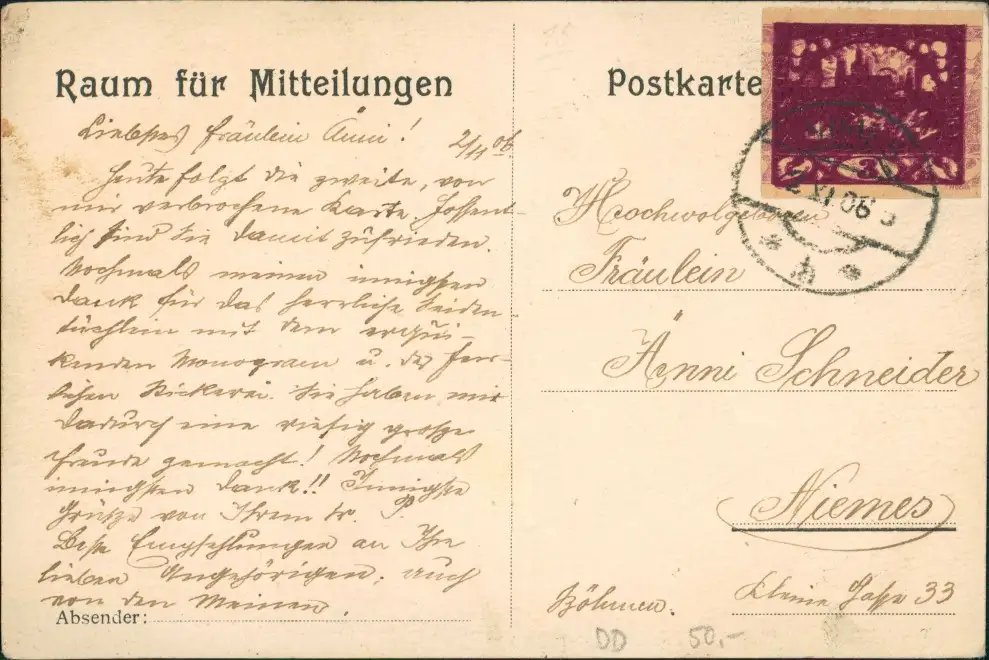 Raum für Mitteilungen
Liebstes Fräulein Änni!
2/11 06.
Heute folgt die zweite, von
mir verbrochene Karte. Hoffent-
lich sind Sie damit zufrieden.
Nochmals meinen innigsten
Dank für das herrliche Seiden-
tüchlein mit dem erqui-
kenden Monogram u. der herr-
lichen Stickerei. Sie haben mir
dadurch eine riesig große
Freude gemacht! Nochmals
innigsten Dank!! Innigste
Grüße von Ihrem tr. P.
Beste Empfehlungen an Ihre
lieben Angehörigen, auch
von den Meinen.
Absender:
Postkarte
2 XI 06
Hochwolgeboren
Fräulein
Änni Schneider
Niemes
Kleine Gasse 33
Böhmen.
DD 50,-